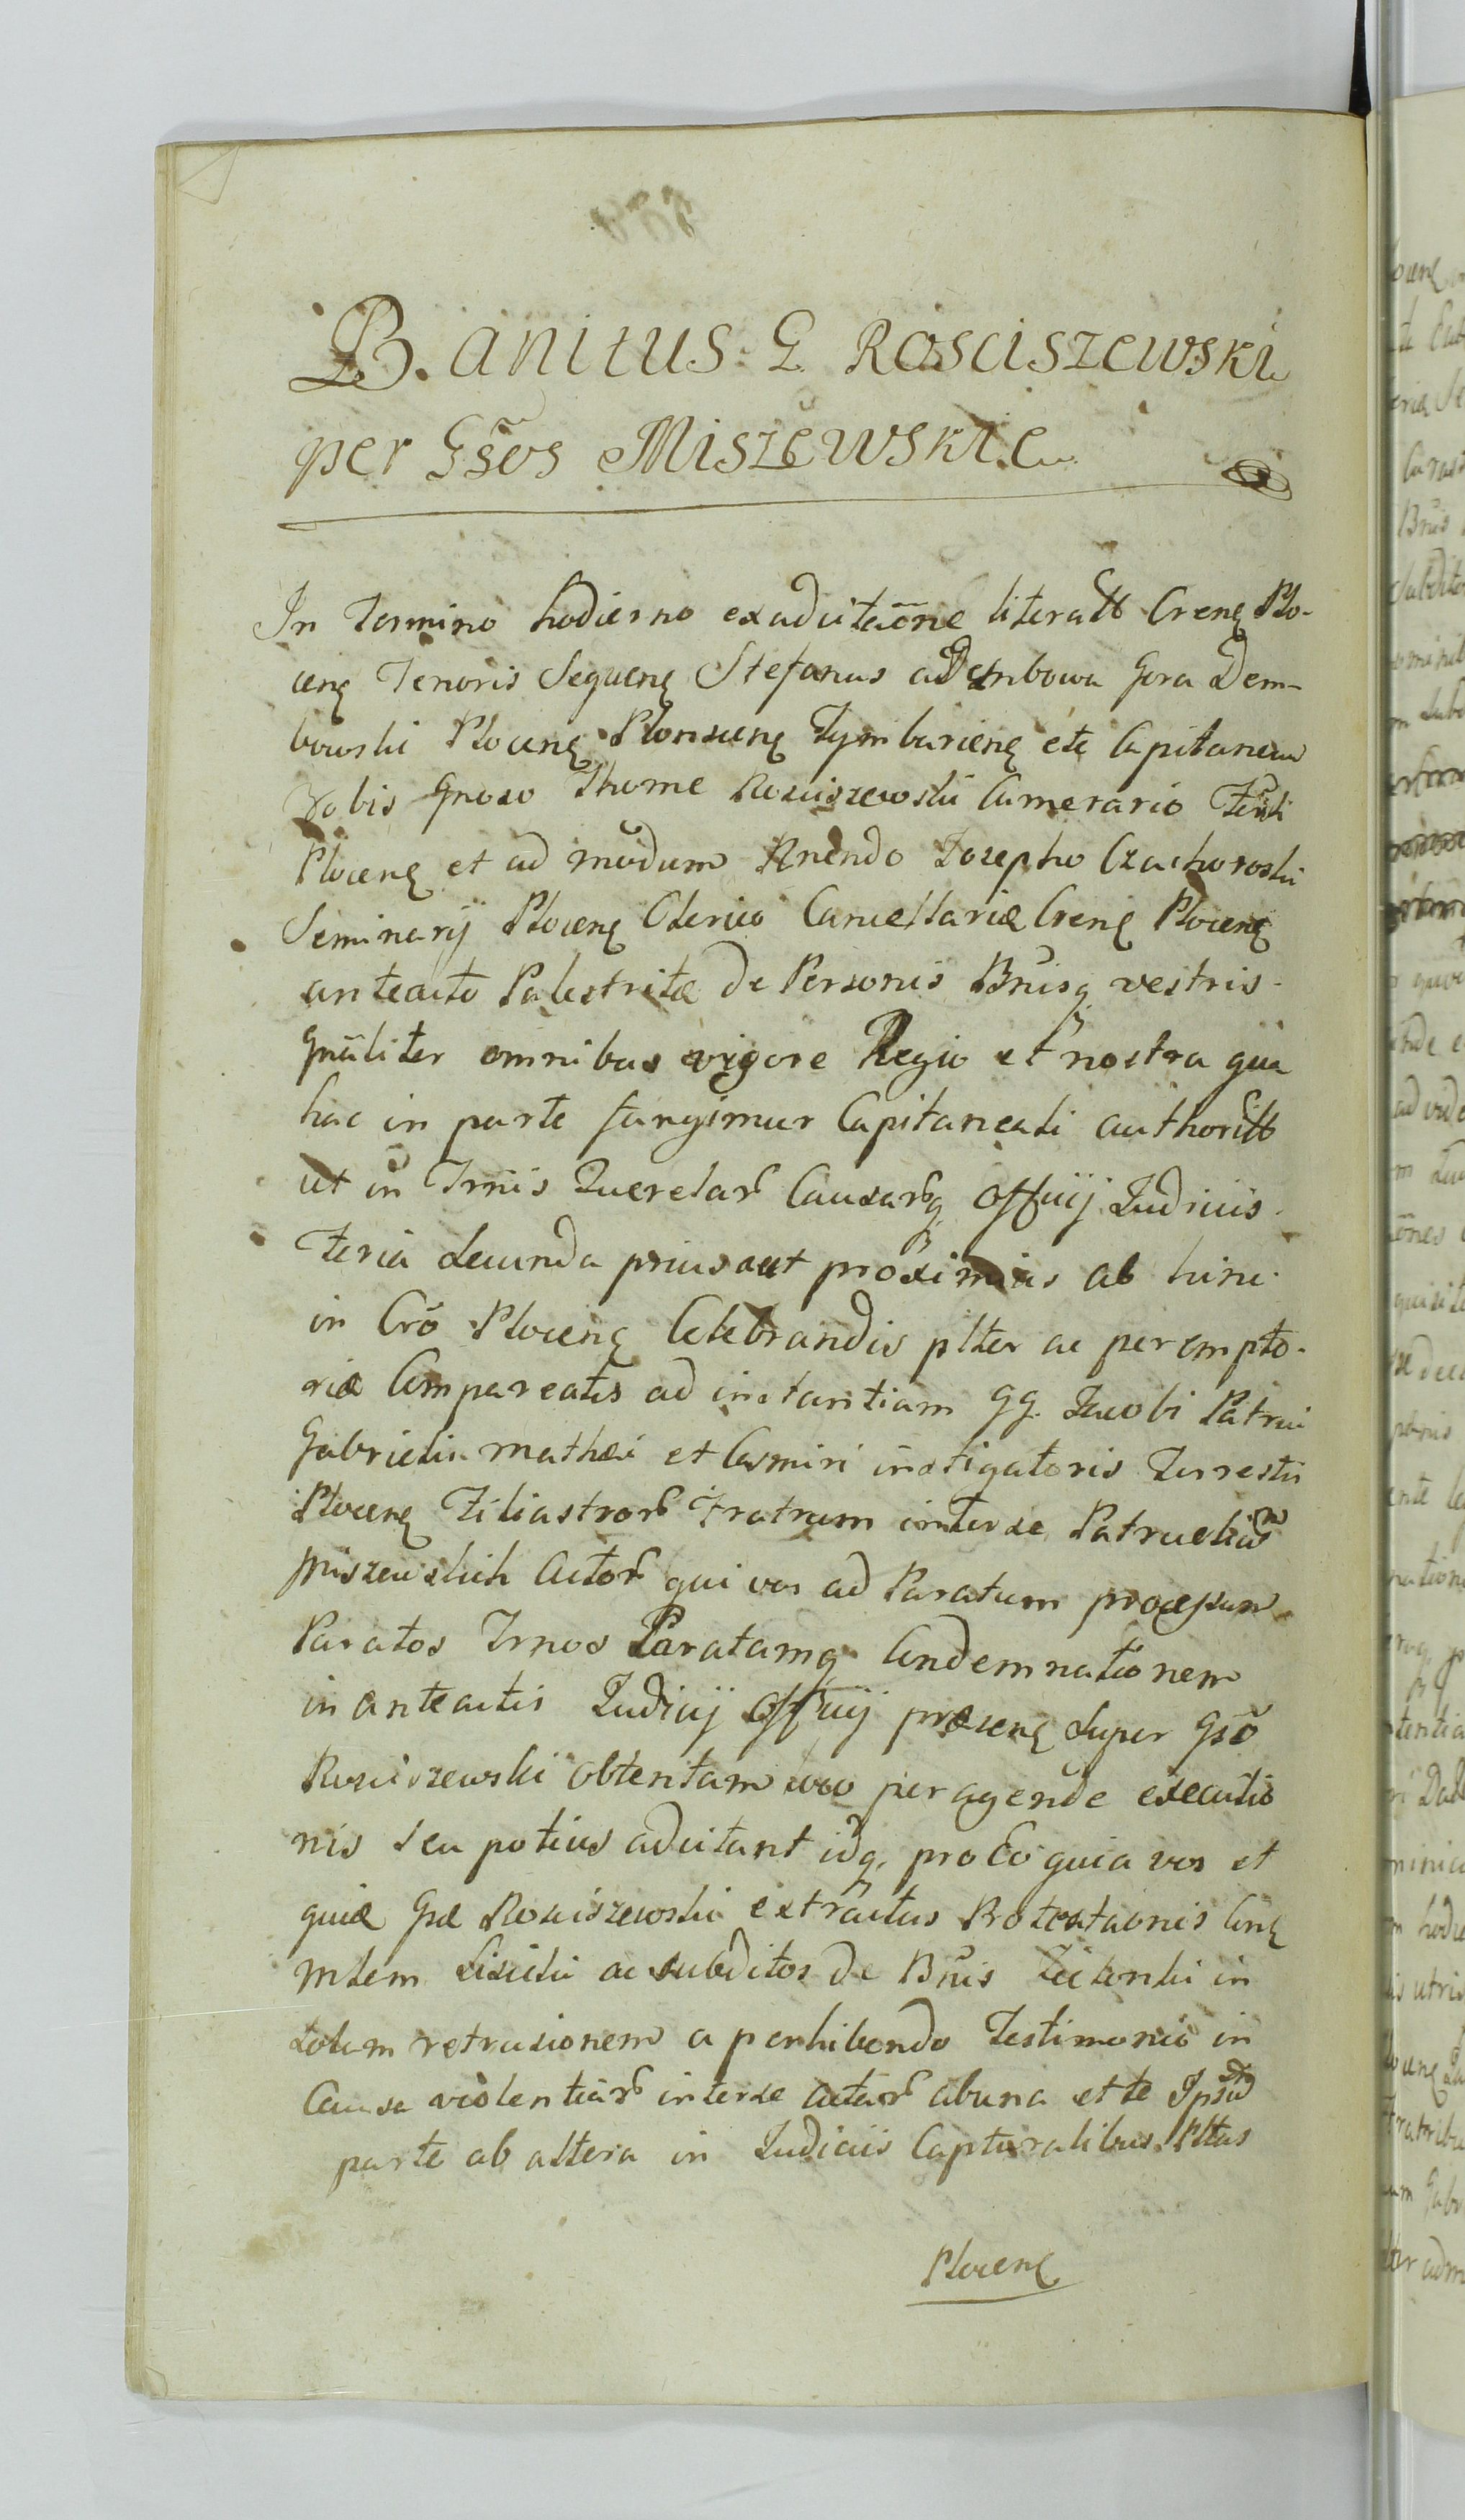 B. anitus G Rosciszewski
per Gsos Miszewskie
In Termino hodierno ex adcitaone literatt Crenę Plo-
cenę Tenoris Sequenę Stefanus a Dembowa Gora Dem-
bowski Plocenę Plonscenę Tymbarienę etc Capitaneus
Vobis Gnoso Thome Rosciszewski Camerario Tersti
Plocenę et ad modum Rnendo Josepho Czachoroski
Seminarij Plocenę Clerico Cancellariæ Crenę Plocenę
anteacto Palestritæ de Personis Bnisq vestris
gnaliter omnibus vigore Regio et nostra qua
hac in parte fungimur Capitaneali authoritt
ut in Trnis Querelar Causarq Officij Judiciis
Feria Secunda prius aut proximius ab hinc
in Cro Plocenę Celebrandis plter ac perempto-
riæ Compareatis ad instantiam GG. Jacobi Patrui
Gabrielis Mathæi et Casmiri instigatoris Terrestri
Plocenę Filiastror Fratrum inter se Patruelium
Miszewskich Actor qui vos ad Paratum processum
Paratos Trnos Paratamq Condemnationem
in anteactis Judicij Officij præsenę super Gso
Rosciszewski obtentam peragende executio
nis seu potius adcitant idq. pro Eo quia vos et
quiæ Gse Rosciszewski extractus Protestaonis Conę
mlem Lisicki ac subditos de Bnis in
totum retrusionem a perhibendo Testimonio in
Causa violentiar inter se actor ab una et te Ipsum
parte ab altera in Judiciis Capturalibus Pltus
Plocenę